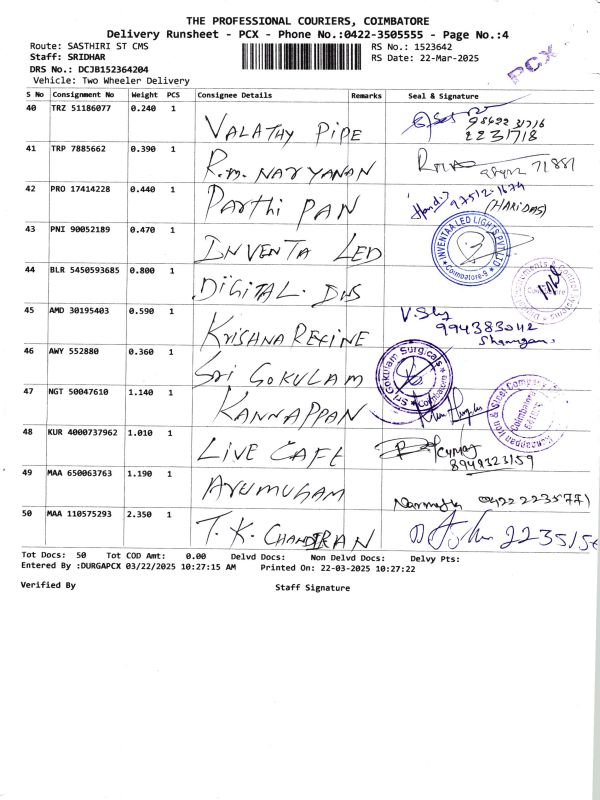 THE PROFESSIONAL COURIERS, COIMBATORE
Delivery Runsheet - PCX - Phone No.:0422-3505555 - Page No.:4
Route: SASTHIRI ST CMS RS No.: 1523642
Staff: SRIDHAR RS Date: 22-Mar-2025
DRS No.: DCJB152364204
Vehicle: Two Wheeler Delivery
PCX
S No Consignment No Weight PCS Consignee Details Remarks Seal & Signature
40 TRZ 51186077 0.240 1 VALATHY PIPE
2231718
41 TRP 7885662 0.390 1 R.M. NARYANAN 71881
42 PRO 17414228 0.440 1 Parthi PAN 97512-1674
(HARIDAS)
43 PNI 90052189 0.470 1 INVENTA LED INVENTAA LED LIGHTS PVT LTD Coimbatore-9
44 BLR 5450593685 0.800 1 DIGITAL. DHS
45 AMD 30195403 0.590 1 KRISHNA REFINE
46 AWY 552880 0.360 1 Sri GOKULAM Sri Gokulam Surgicals Coimbatore
47 NGT 50047610 1.140 1 KANNAPPAN Kannappan Iron & Steel Company Coimbatore
48 KUR 4000737962 1.010 1 LIVE CAFE
8949323159
49 MAA 650063763 1.190 1 ARUMUGAM 0422 2235771
50 MAA 110575293 2.350 1 T. K. CHANDIRAN
Tot Docs: 50 Tot COD Amt: 0.00 Delvd Docs: Non Delvd Docs: Delvy Pts:
Entered By :DURGAPCX 03/22/2025 10:27:15 AM Printed On: 22-03-2025 10:27:22
Verified By Staff Signature